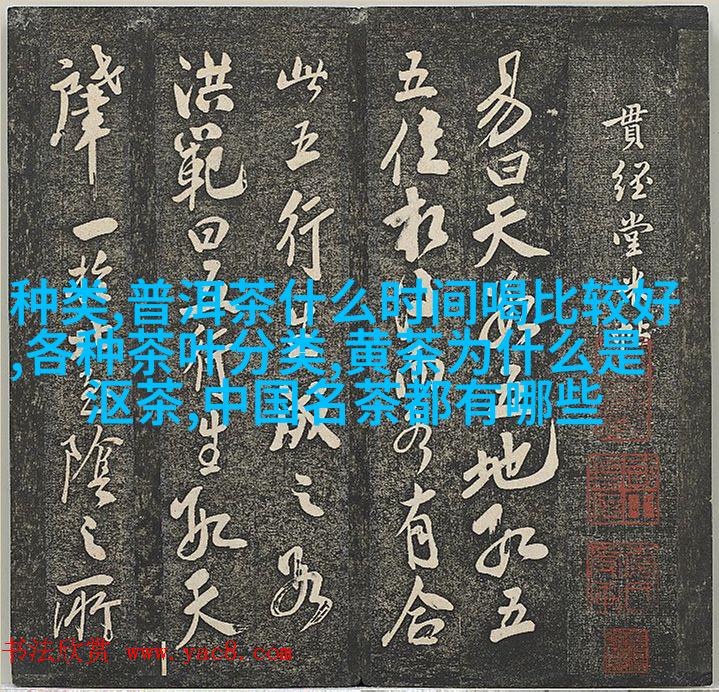 貫经堂米
易曰天数五地数五
五位相得而各有合
此五行生成之数
洪範曰五行生数天
一陰之所
种类,普洱茶什么时间喝比较好
,各种茶叶分类,黄茶为什么是
沤茶,中国名茶都有哪些
书法欣赏 www.yac8.com